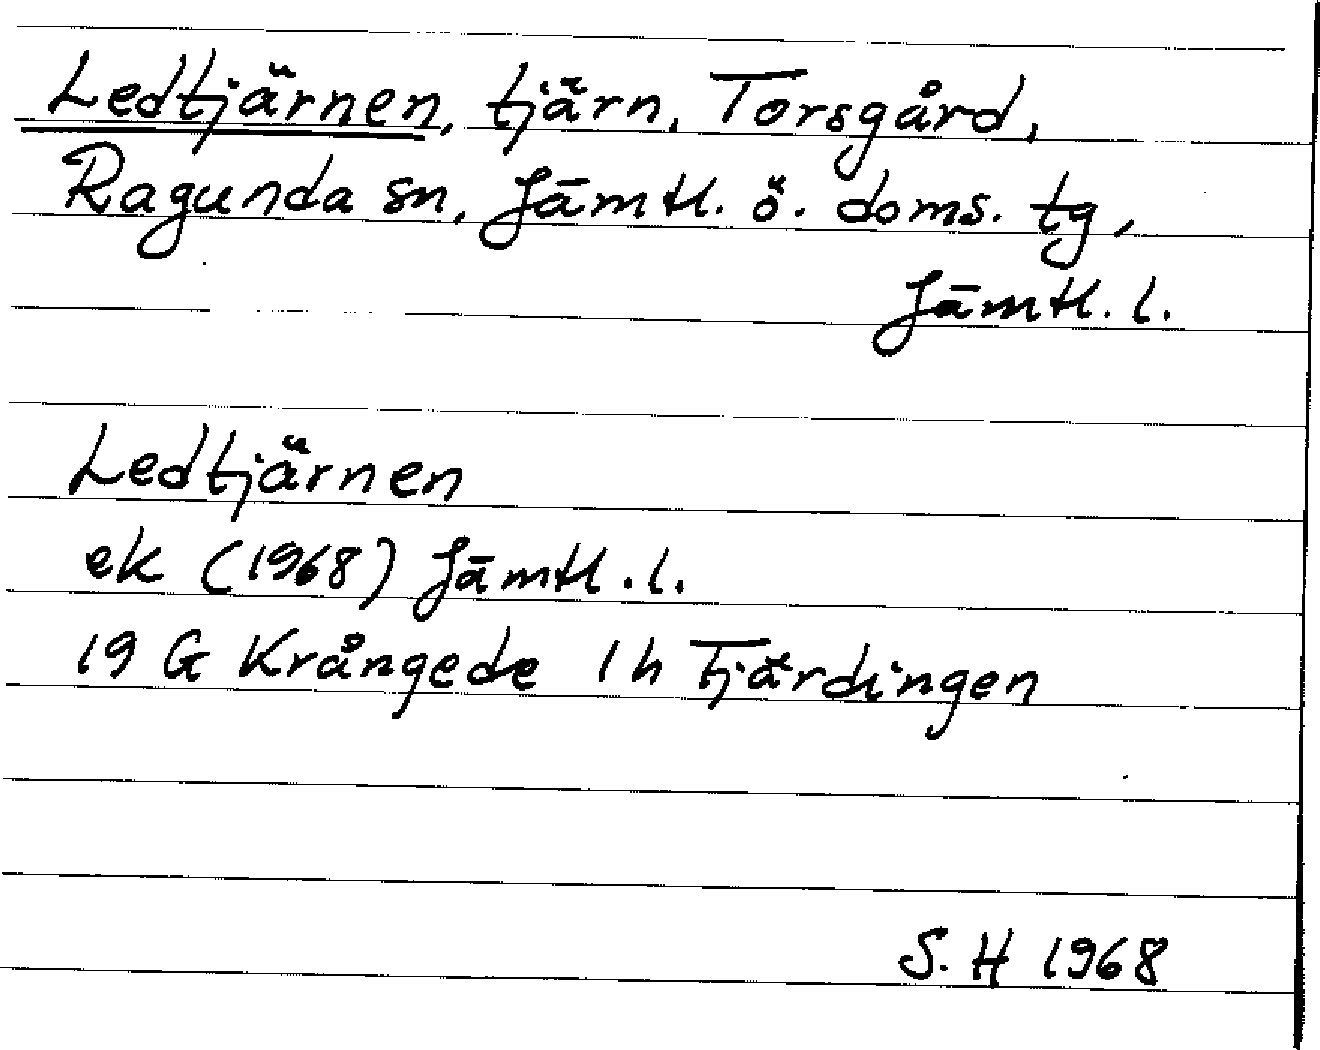 Ledtjärnen, tjärn, Torsgård,
Ragunda sn, Jämtl. ö. doms. tg,
Jämtl. l.
Ledtjärnen
ek (1968) Jämtl. l.
19 G Krångede 1 h Tjärdingen
S. H 1968